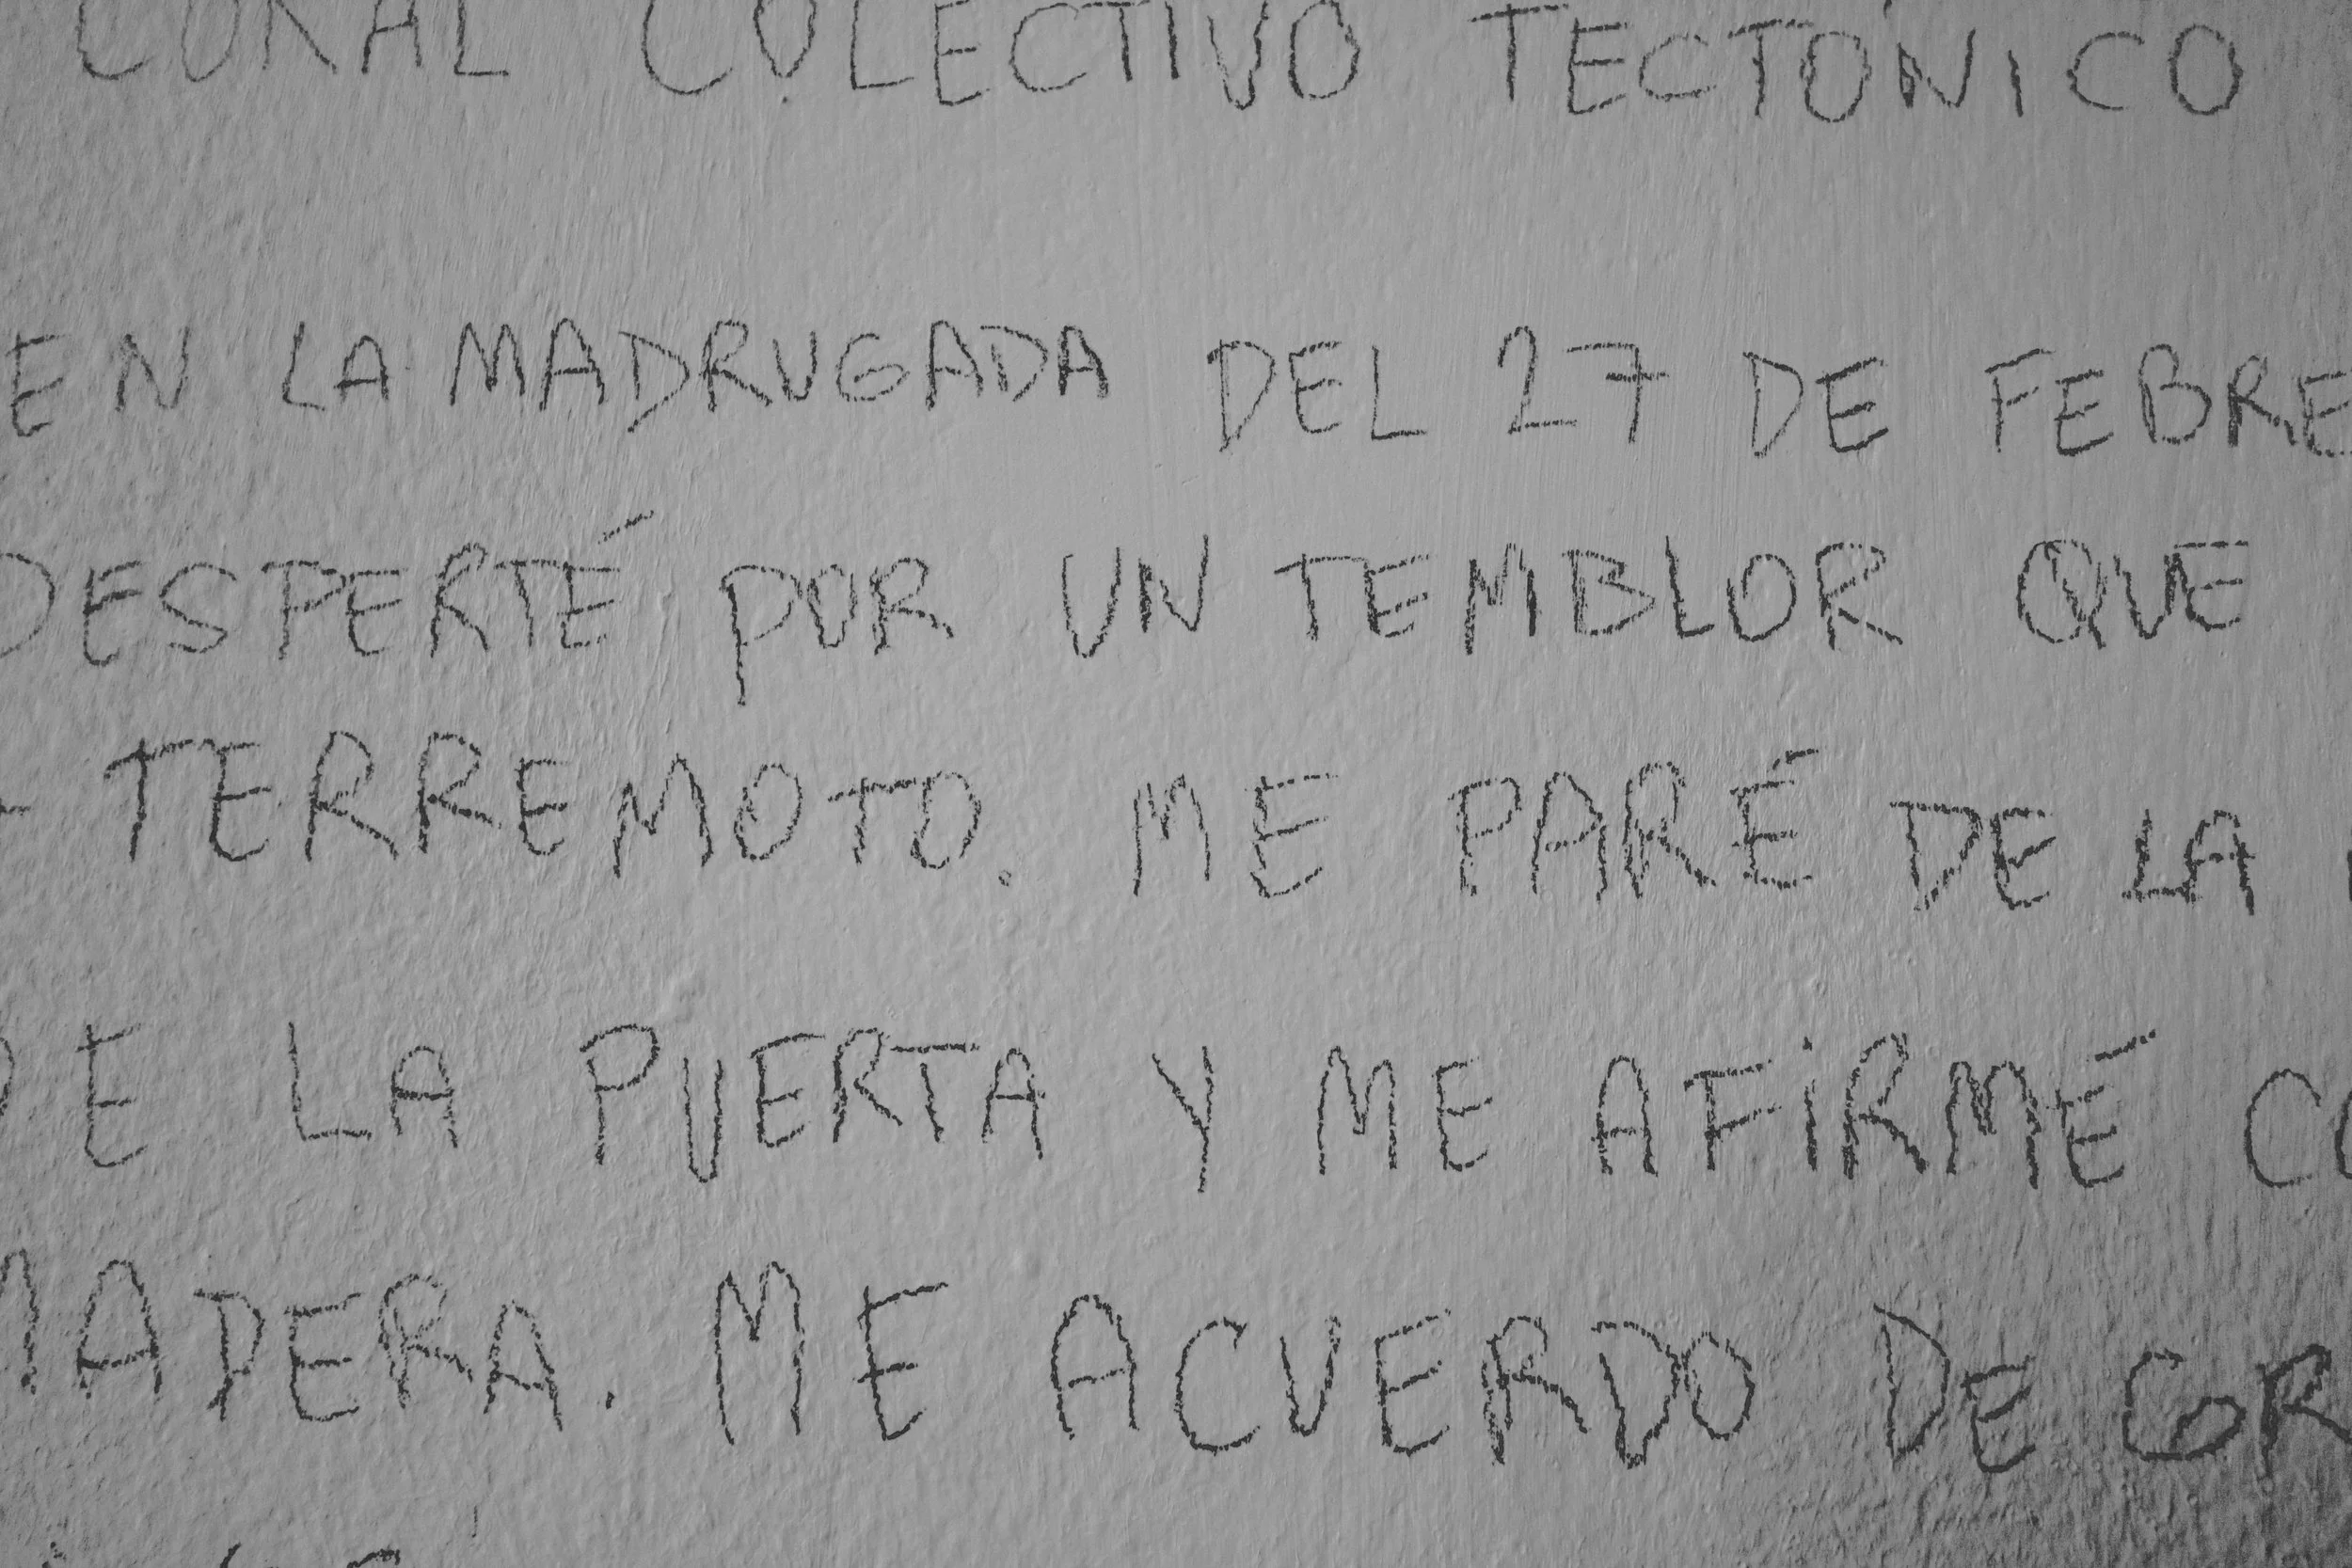 CORAL COLECTIVO TECTÓNICO
EN LA MADRUGADA DEL 27 DE FEBRE
DESPERTÉ POR UN TEMBLOR QUE
TERREMOTO. ME PARÉ DE LA
DE LA PUERTA Y ME AFIRMÉ CO
MADERA. ME ACUERDO DE GR